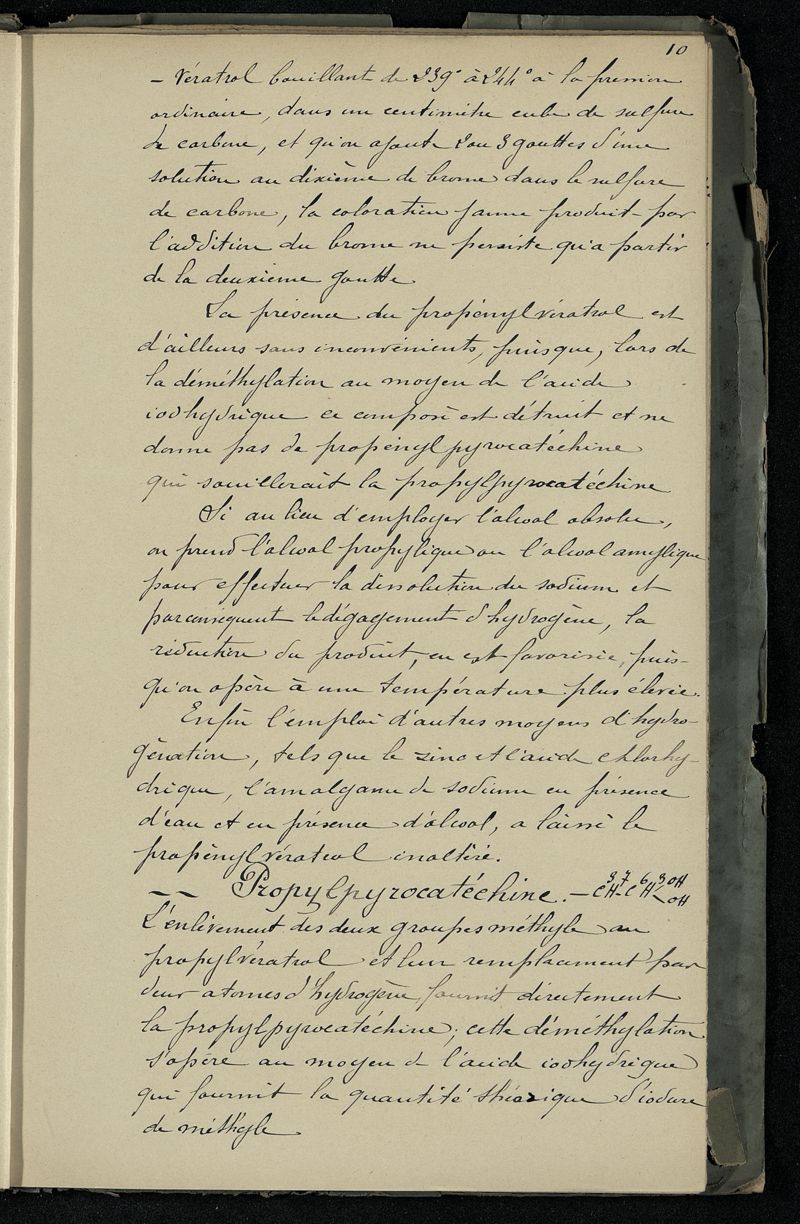 10
- Vératrol bouillant de 239° à 244° à la pression
ordinaire, dans un centimètre cube de sulfure
de carbone, et qu'on ajoute 2 ou 3 gouttes d'une
solution au dixième de brome dans le sulfure
de carbone, la coloration jaune produit par
l'addition du brome ne persiste qu'a partir
de la deuxième goutte.
La présence du propénylvératrol est
d'ailleurs sans inconvénients, puisque, lors de
la déméthylation au moyen de l'acide
iodhydrique ce composé est détruit et ne
donne pas de propénylpyrocatéchine
qui souillerait la propylpyrocatéchine
Si au lieu d'employer l'alcool absolu,
on prend l'alcool propylique ou l'alcool amylique
pour effectuer la dissolution du sodium et
par conséquent le dégagement d'hydrogène, la
réduction du produit, en est favorisée, puis-
qu'on opère à une température plus élevée.
Enfin l'emploi d'autres moyens d'hydro-
génation, tels que le zinc et l'acide chlorhy-
drique, l'amalgame de sodium en présence
d'eau et en présence d'alcool, a laissé le
propénylvératrol inaltéré.
-- Propylpyrocatéchine. - C³H⁷-C⁶H³<OH OH
L'enlèvement des deux groupes méthyle au
propylvératrol et leur remplacement par
deux atomes d'hydrogène fournit directement
la propylpyrocatéchine; cette déméthylation
s'opère au moyen de l'acide iodhydrique
qui fournit la quantité théorique d'iodure
de méthyle